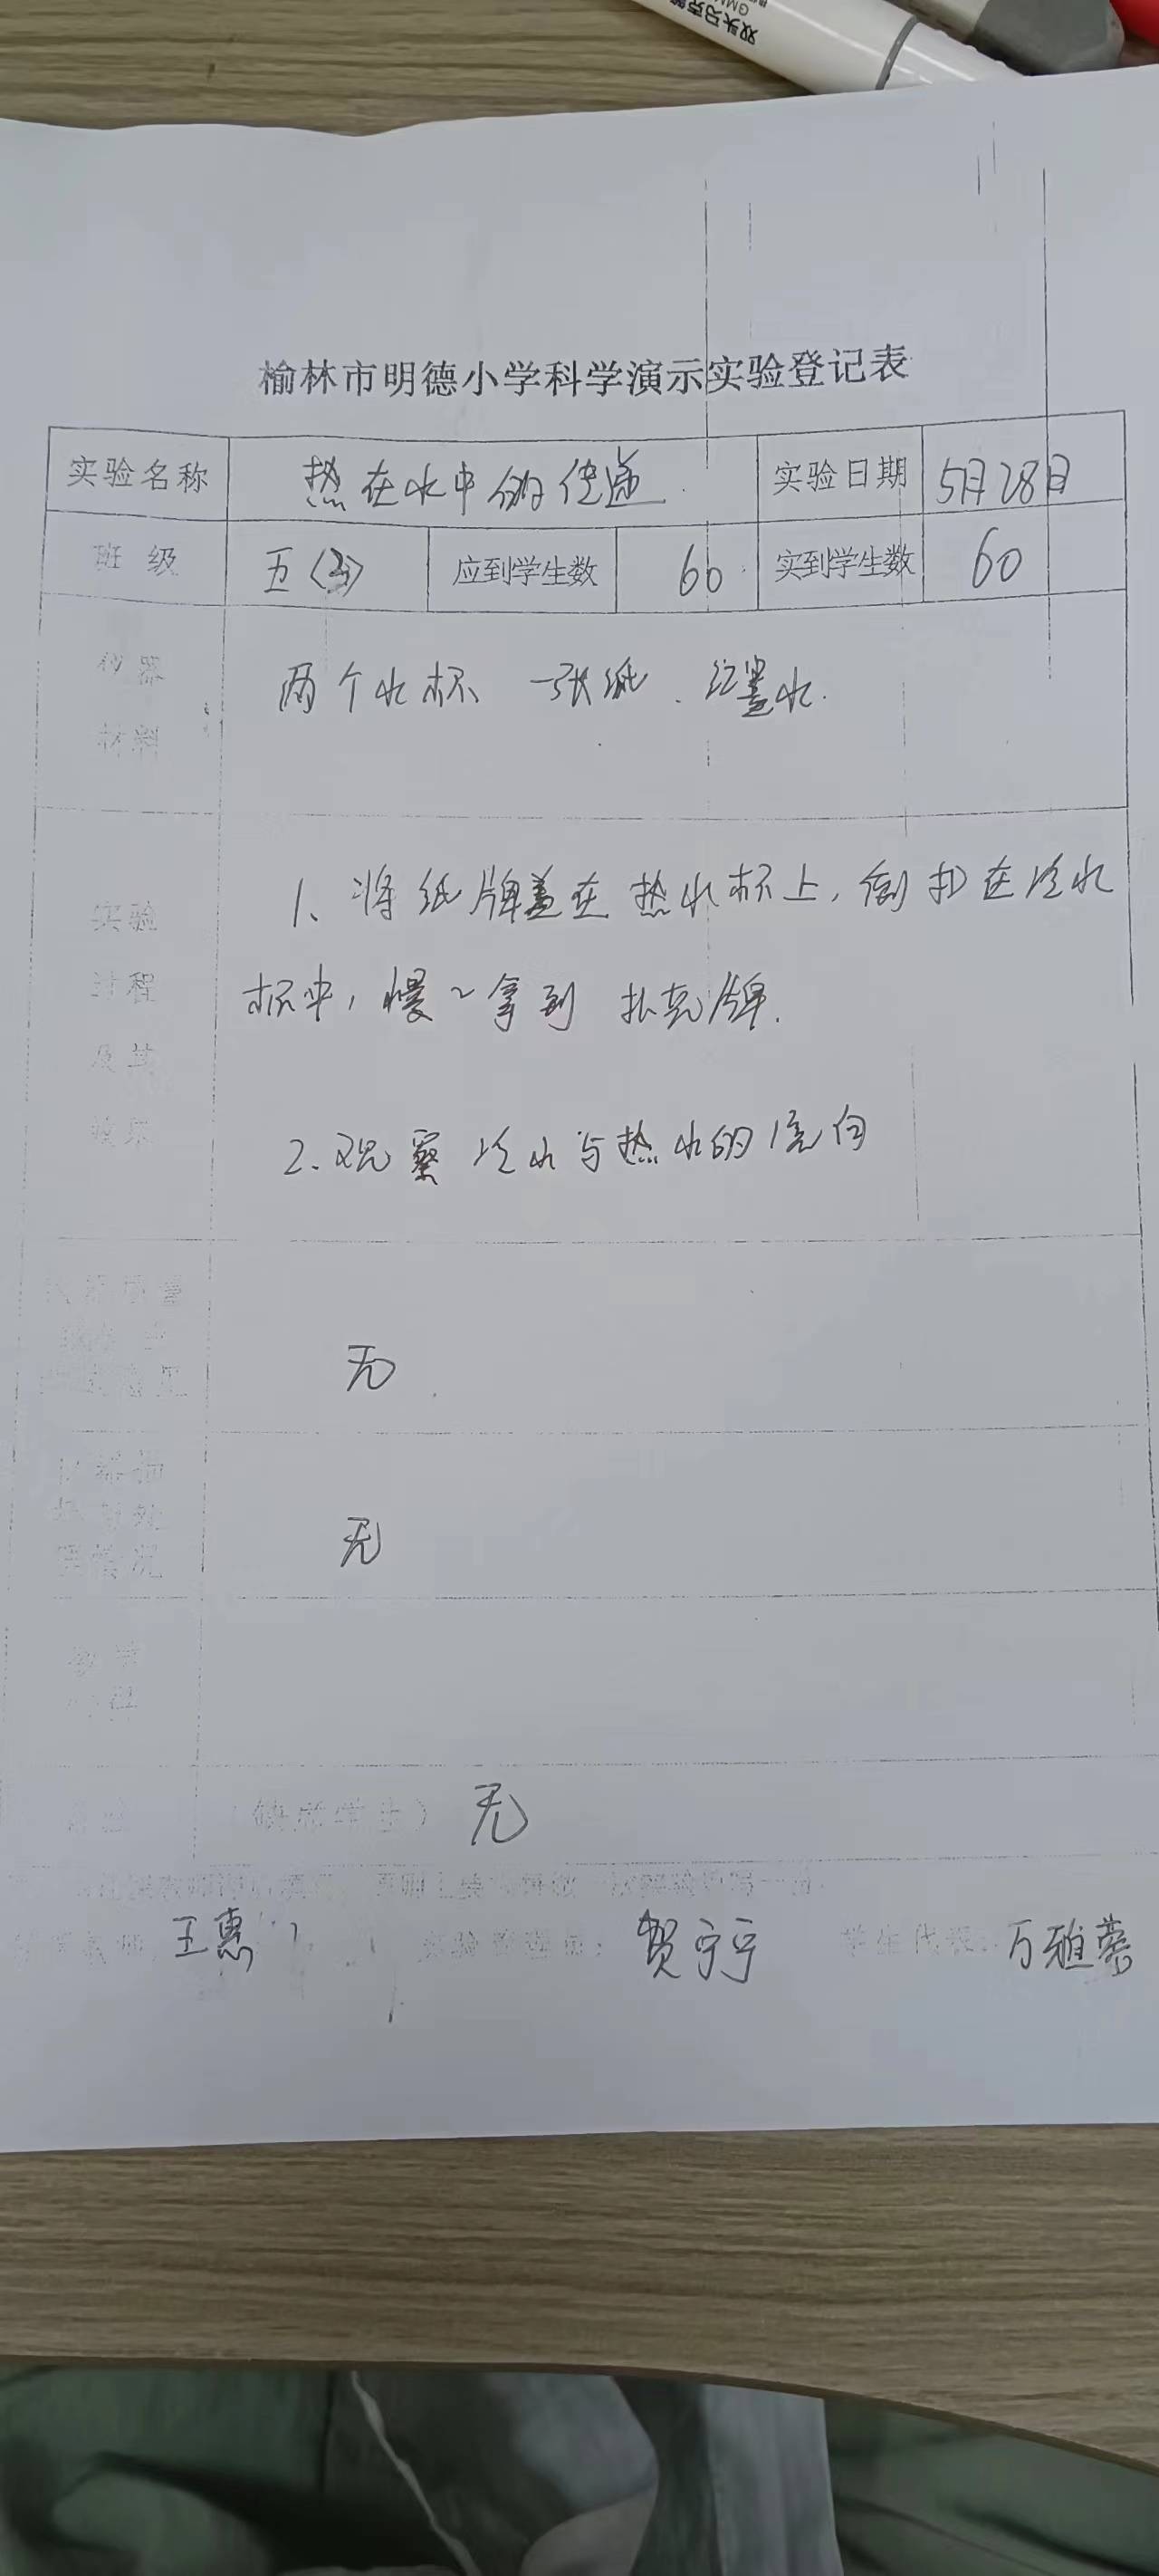 双头记号笔
榆林市明德小学科学演示实验登记表
实验名称 热在水中的传递 实验日期 5月28日
班级 五〈3〉 应到学生数 60 实到学生数 60
仪器
材料
两个水杯 一张纸、红墨水.
实验
过程
及其
效果
1、将纸牌盖在热水杯上,倒扣在冷水
杯中,慢~拿到 扑克牌.
2.观察冷水与热水的流向
无
无
(缺席学生) 无
王惠 贺宁宁 学生代表: 万雅蓉